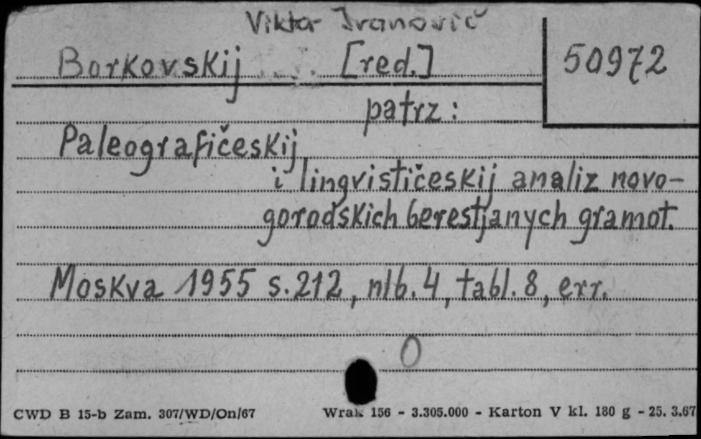 Viktor Ivanovič
Borkovskij . . . [red.] 50972
patrz:
Paleografičeskij
i lingvističeskij analiz novo-
gorodskich berestjanych gramot.
Moskva 1955 s. 212, nlb. 4, tabl. 8, err.
0
CWD B 15-b Zam. 307/WD/On/67 Wrak 156 - 3.305.000 - Karton V kl. 180 g - 25. 3.67